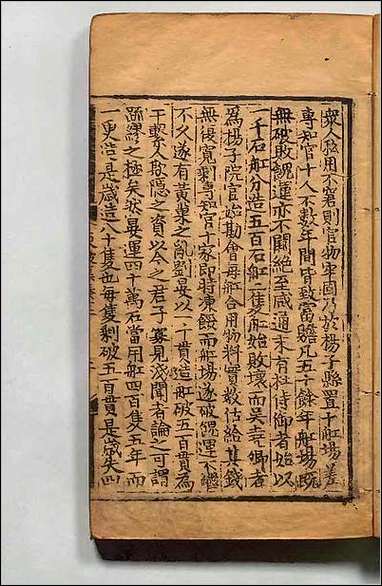 眾人私用不窘則官物牢固乃於楊子縣置十舡場差
專知官十人不數年間皆致富贍凡五十餘年舡場既
無破敗餽運亦不闕絕至咸通末有杜侍御者始以
一千石舡分造五百石舡二隻舡始敗壞而吳堯卿者
為楊子院官始勘會每舡合用物料實數估給其錢
無復寬剩專知官十家即時凍餒而舡場遂破餽運不繼
不久遂有黃巢之亂劉晏以一千貫造舡破五百貫為
干繫人欺隱之資以今之君子寡見淺聞者論之可謂
疎繆之極矣然晏運四十萬石當用舡四百隻五年而
一更造是歲造八十隻也每隻剩破五百貫是歲失四